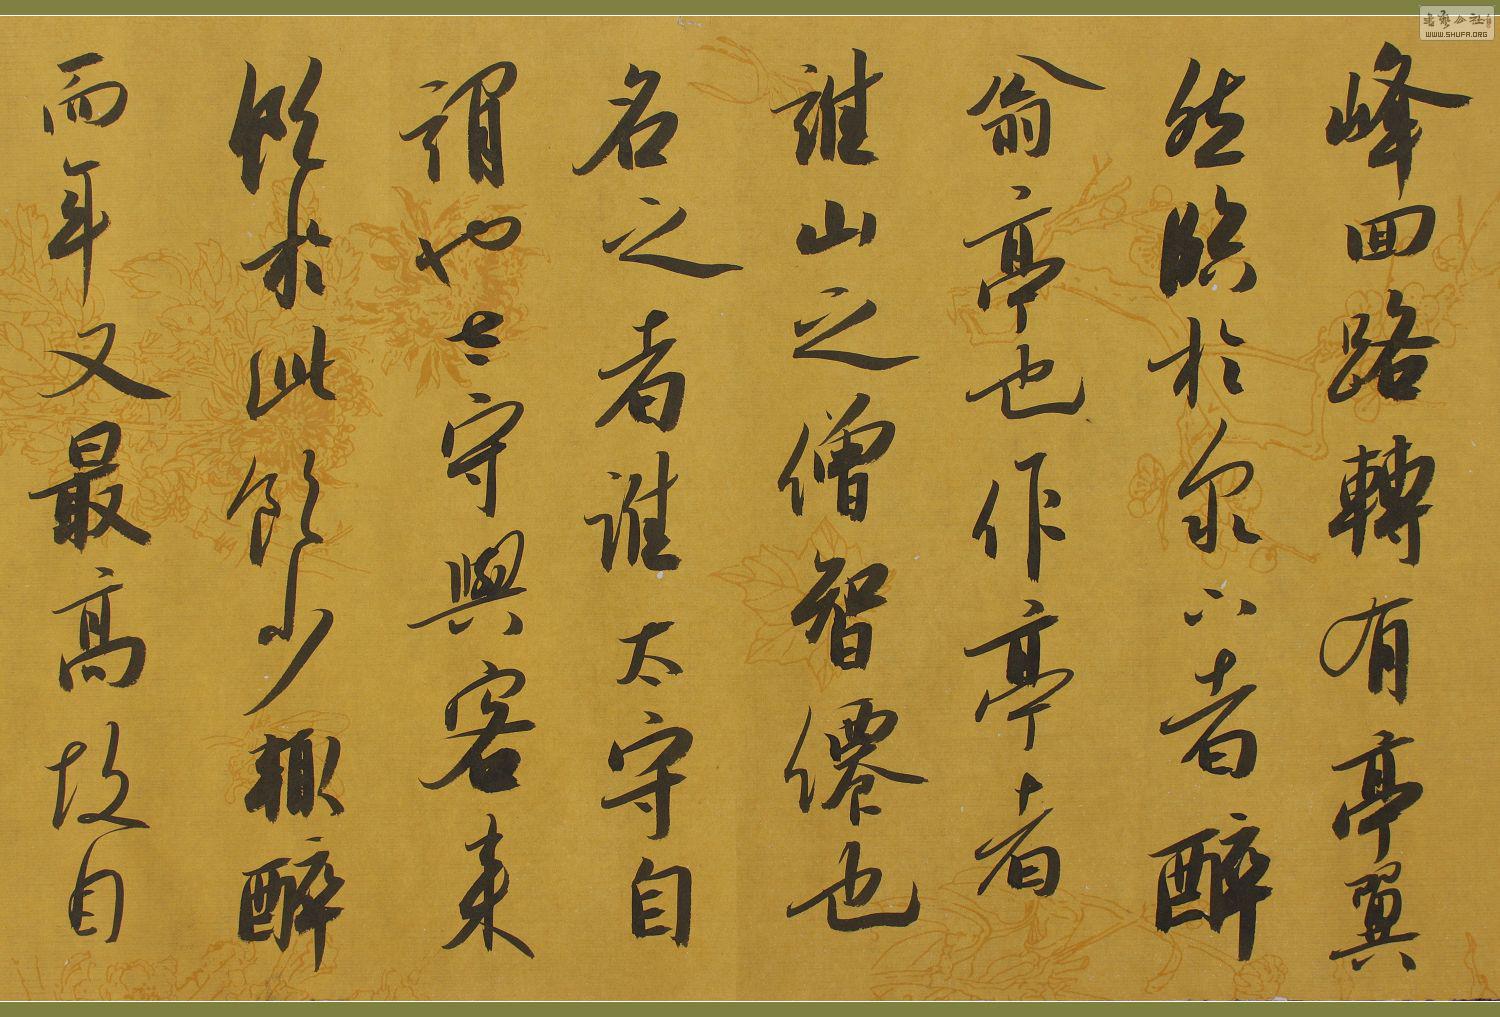 峰回路轉有亭翼
然臨於泉上者醉
翁亭也作亭者
誰山之僧智僊也
名之者誰太守自
謂也太守與客來
飲於此飲少輒醉
而年又最高故自
书艺公社
WWW.SHUFA.ORG